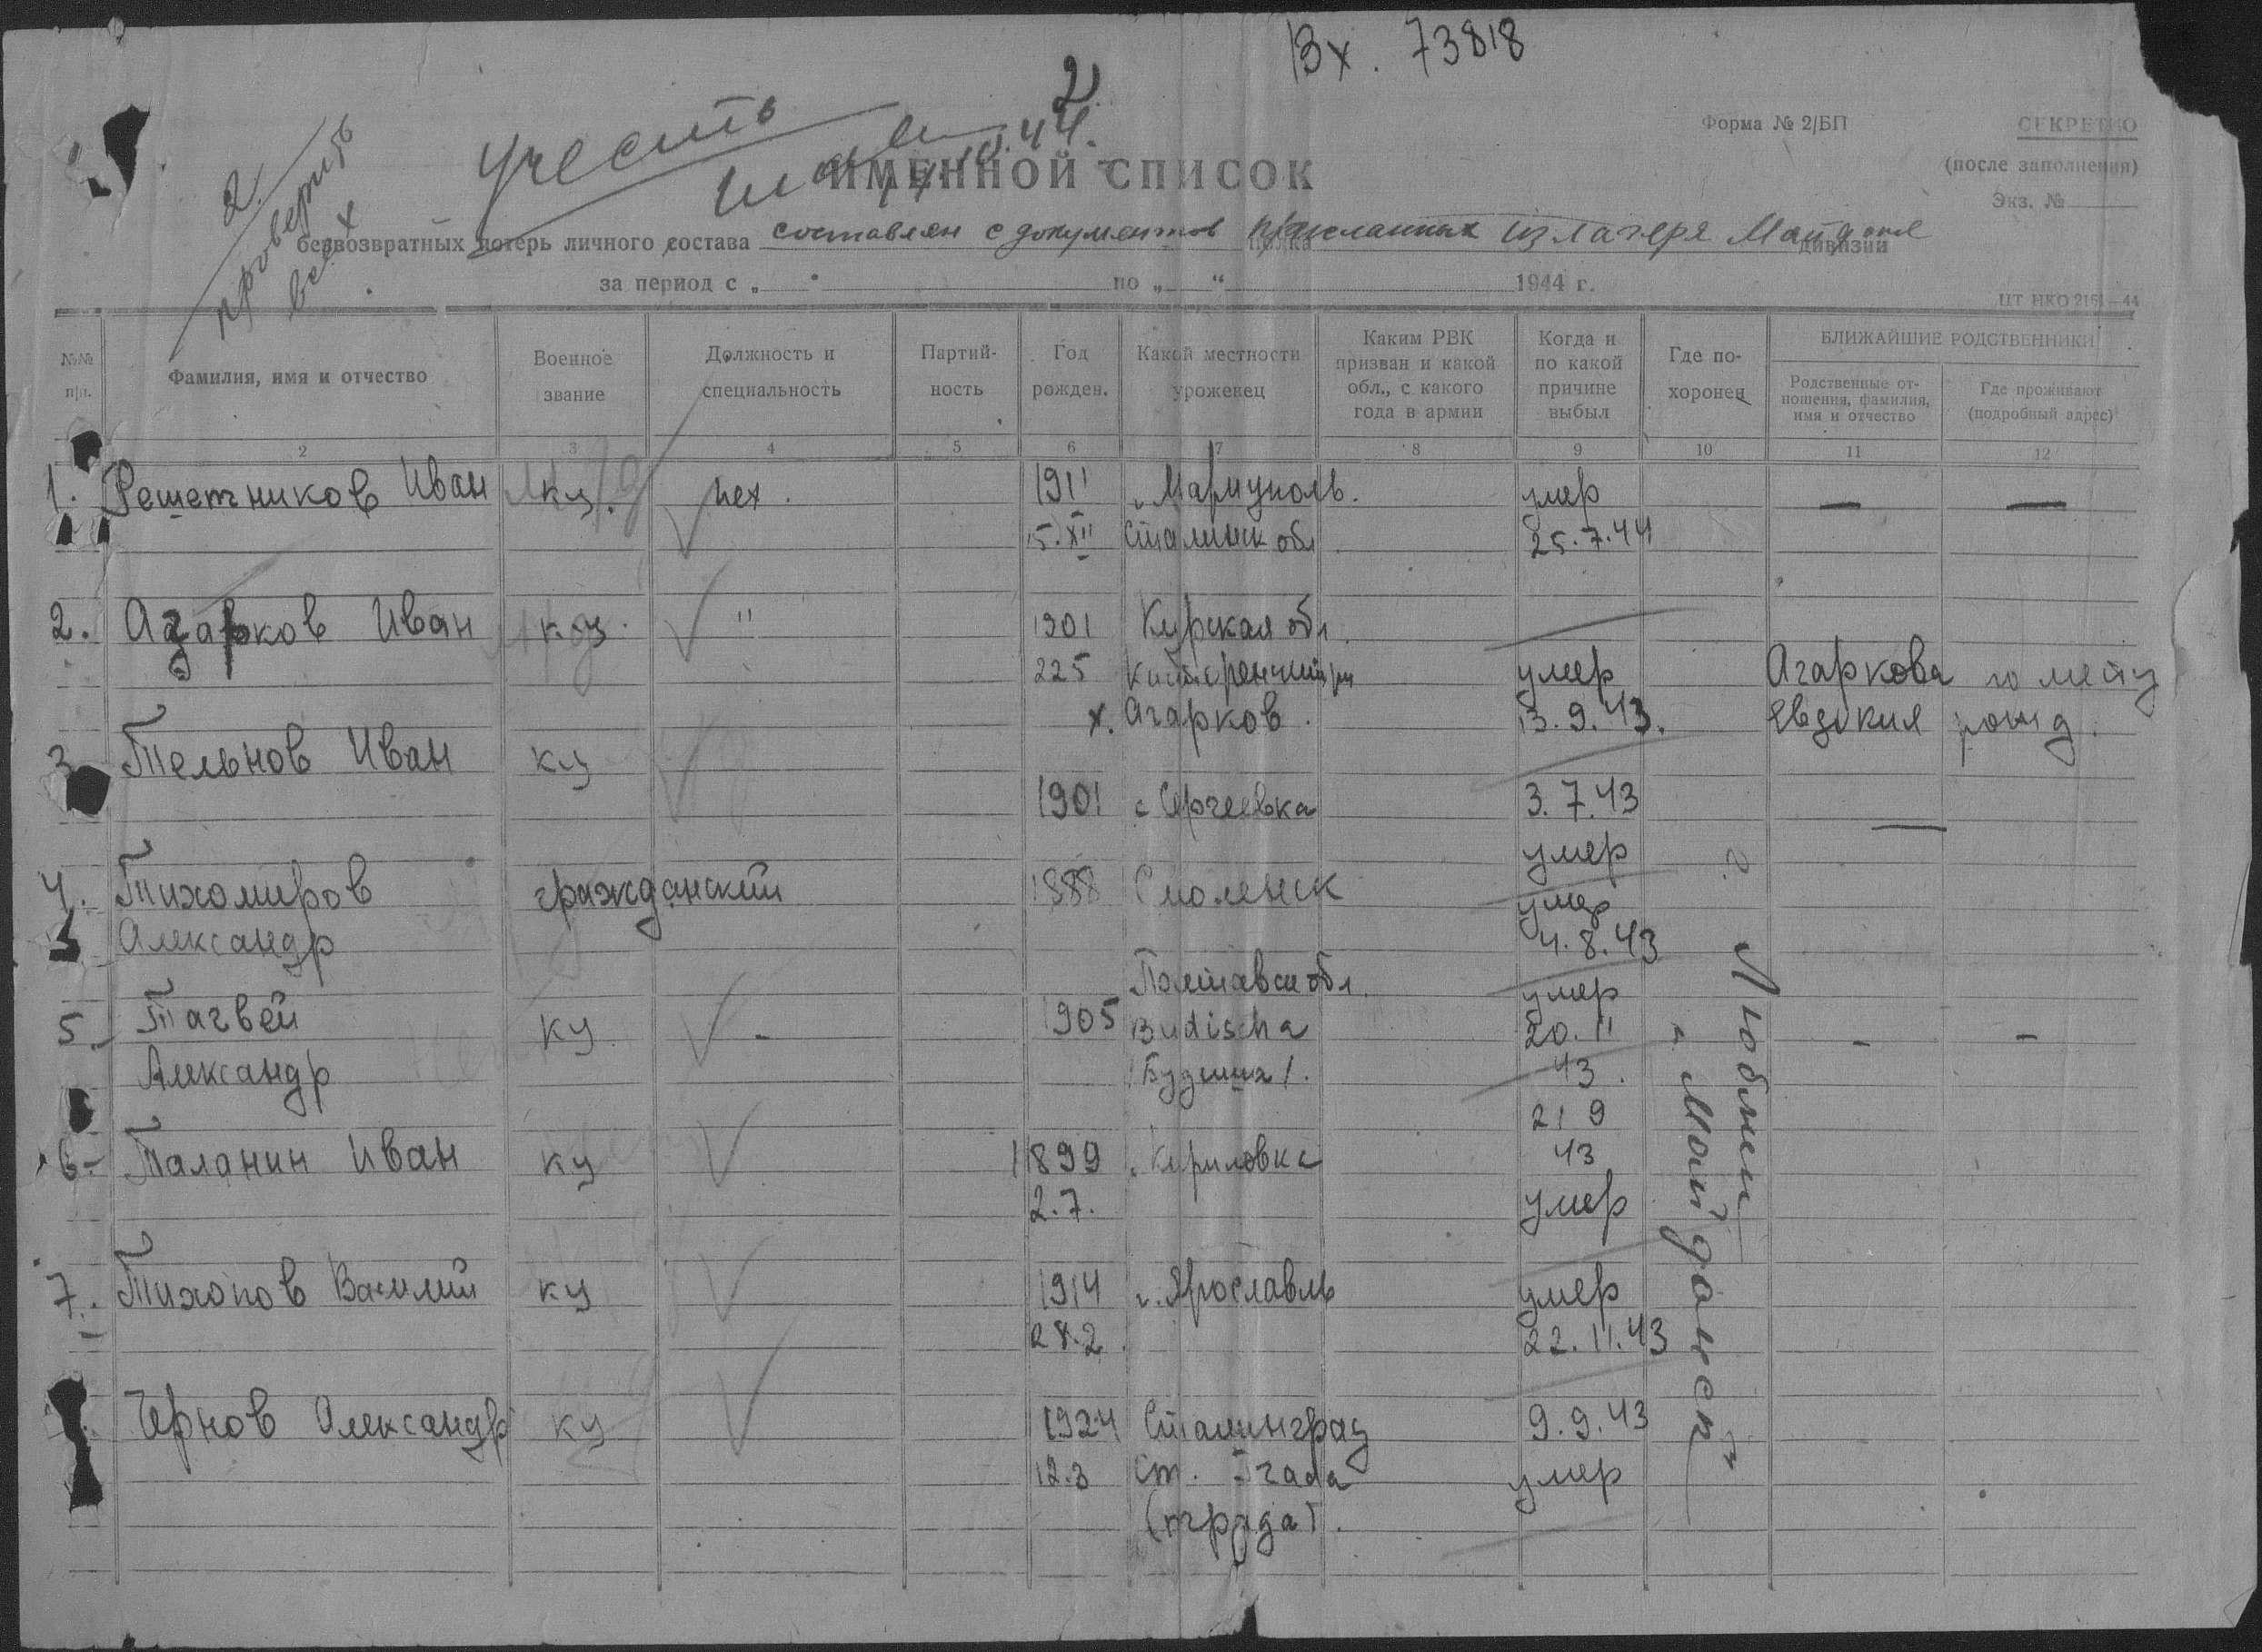 Вх. 73818
2
учесть
10.44.
2.
проверить
всех
Форма № 2/БП
СЕКРЕТНО
(после заполнения)
Экз. №
ИМЕННОЙ СПИСОК
безвозвратных потерь личного состава составлен с документов полка присланных из лагеря Майданек дивизии
за период с „ " по „ " 1944 г.
ЦТ НКО 2151—44
№№ п/п.
Фамилия, имя и отчество
Военное звание
Должность и специальность
Партий-ность
Год рожден.
Какой местности уроженец
Каким РВК призван и какой обл., с какого года в армии
Когда и по какой причине выбыл
Где по-хоронен
БЛИЖАЙШИЕ РОДСТВЕННИКИ
Родственные от-ношения, фамилия, имя и отчество
Где проживают (подробный адрес)
2 3 4 5 6 7 8 9 10 11 12
1. Решетников Иван кц пех. 1911 г. Мариуполь. умер — —
5.XII Сталинск обл 25.7.44
2. Агарков Иван кц " 1901 Курская обл.
225 умер Агаркова по месту
х. Агарков. 13.9.43. Евдокия рожд.
3 Тельнов Иван кц
1901 с Сергеевка 3.7.43 —
умер
4. Тихомиров гражданский 1888 Смоленск умер
Александр 4.8.43
Полтавск обл. умер
5. Тагвей кц - 1905 Budischa 20.11 - -
Александр /Будища/. 43.
21 9
6- Таланин Иван кц 1899 с. Кириловка 43
2.7. умер
7. Тихонов Василий кц 1914 г. Ярославль умер
28.2. 22.11.43
Чернов Александр кц 1924 Сталинград 9.9.43
12.3 ст. умер
г. Люблин
"Майданек"